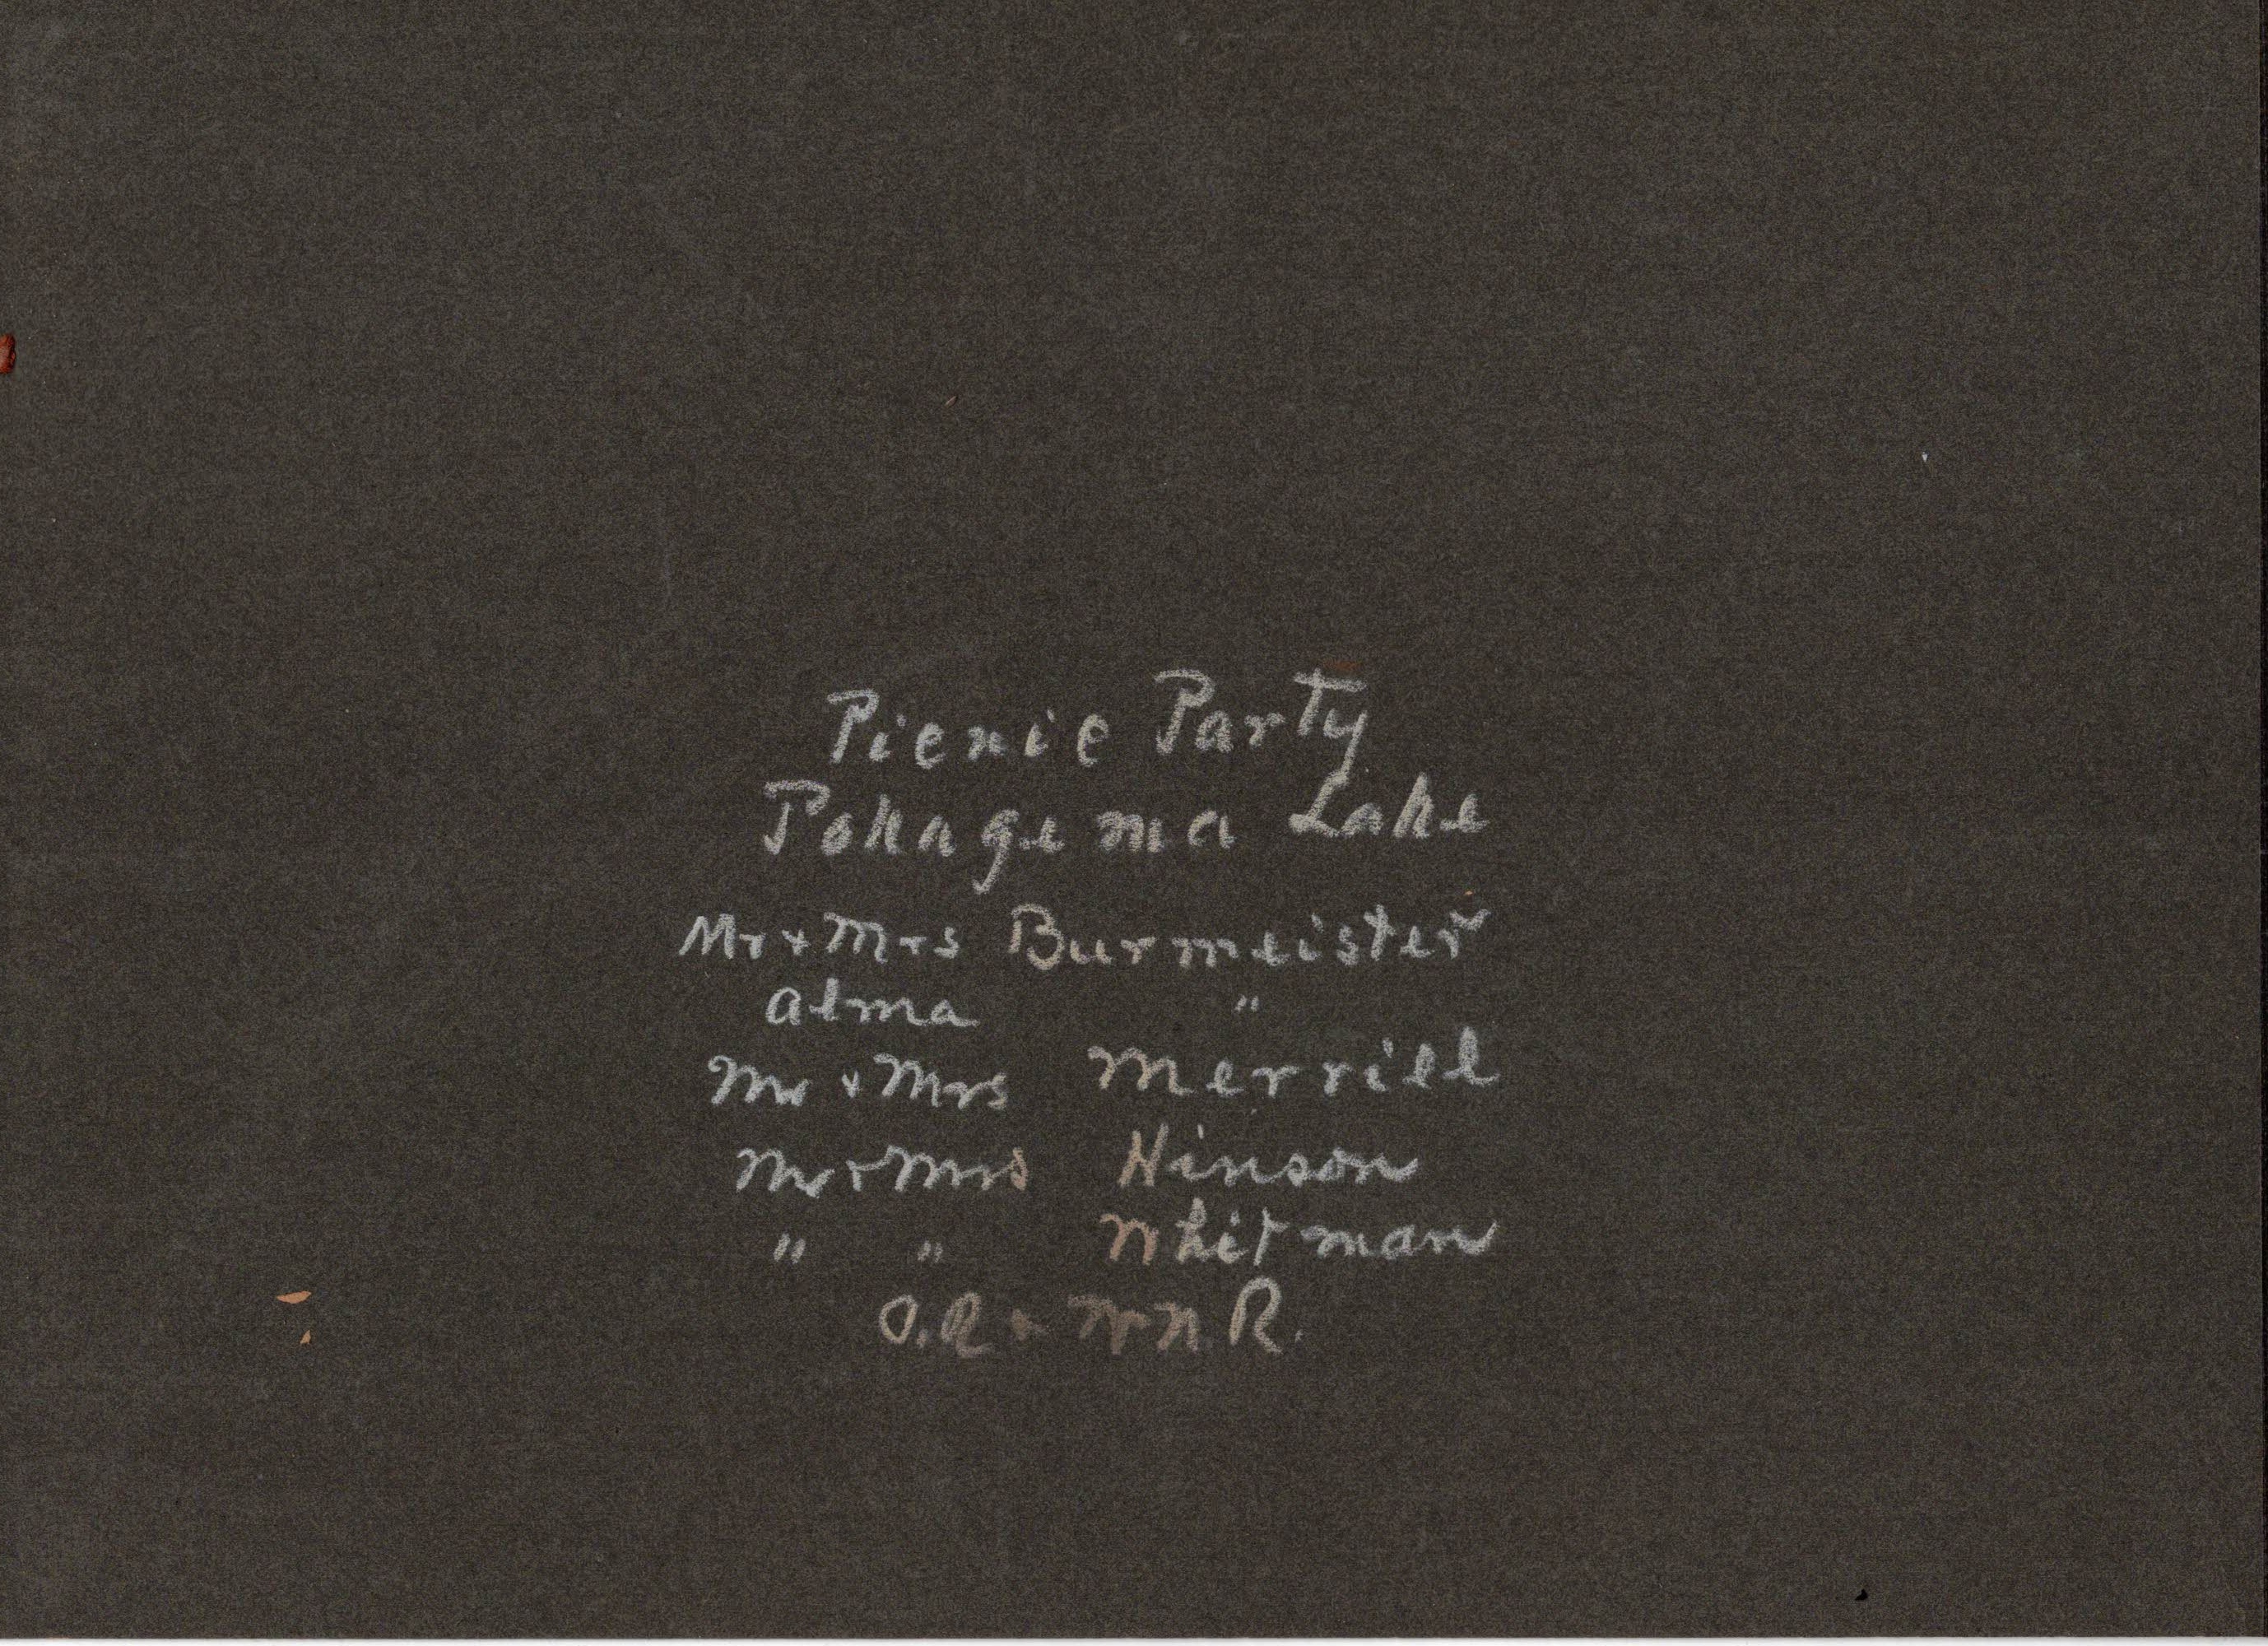 Picnic Party
Pokagema Lake
Mr + Mrs Burmeister
Alma "
Mr + Mrs Merrill
Mr + Mrs Hinson
" " Whitman
O.R + W N R.